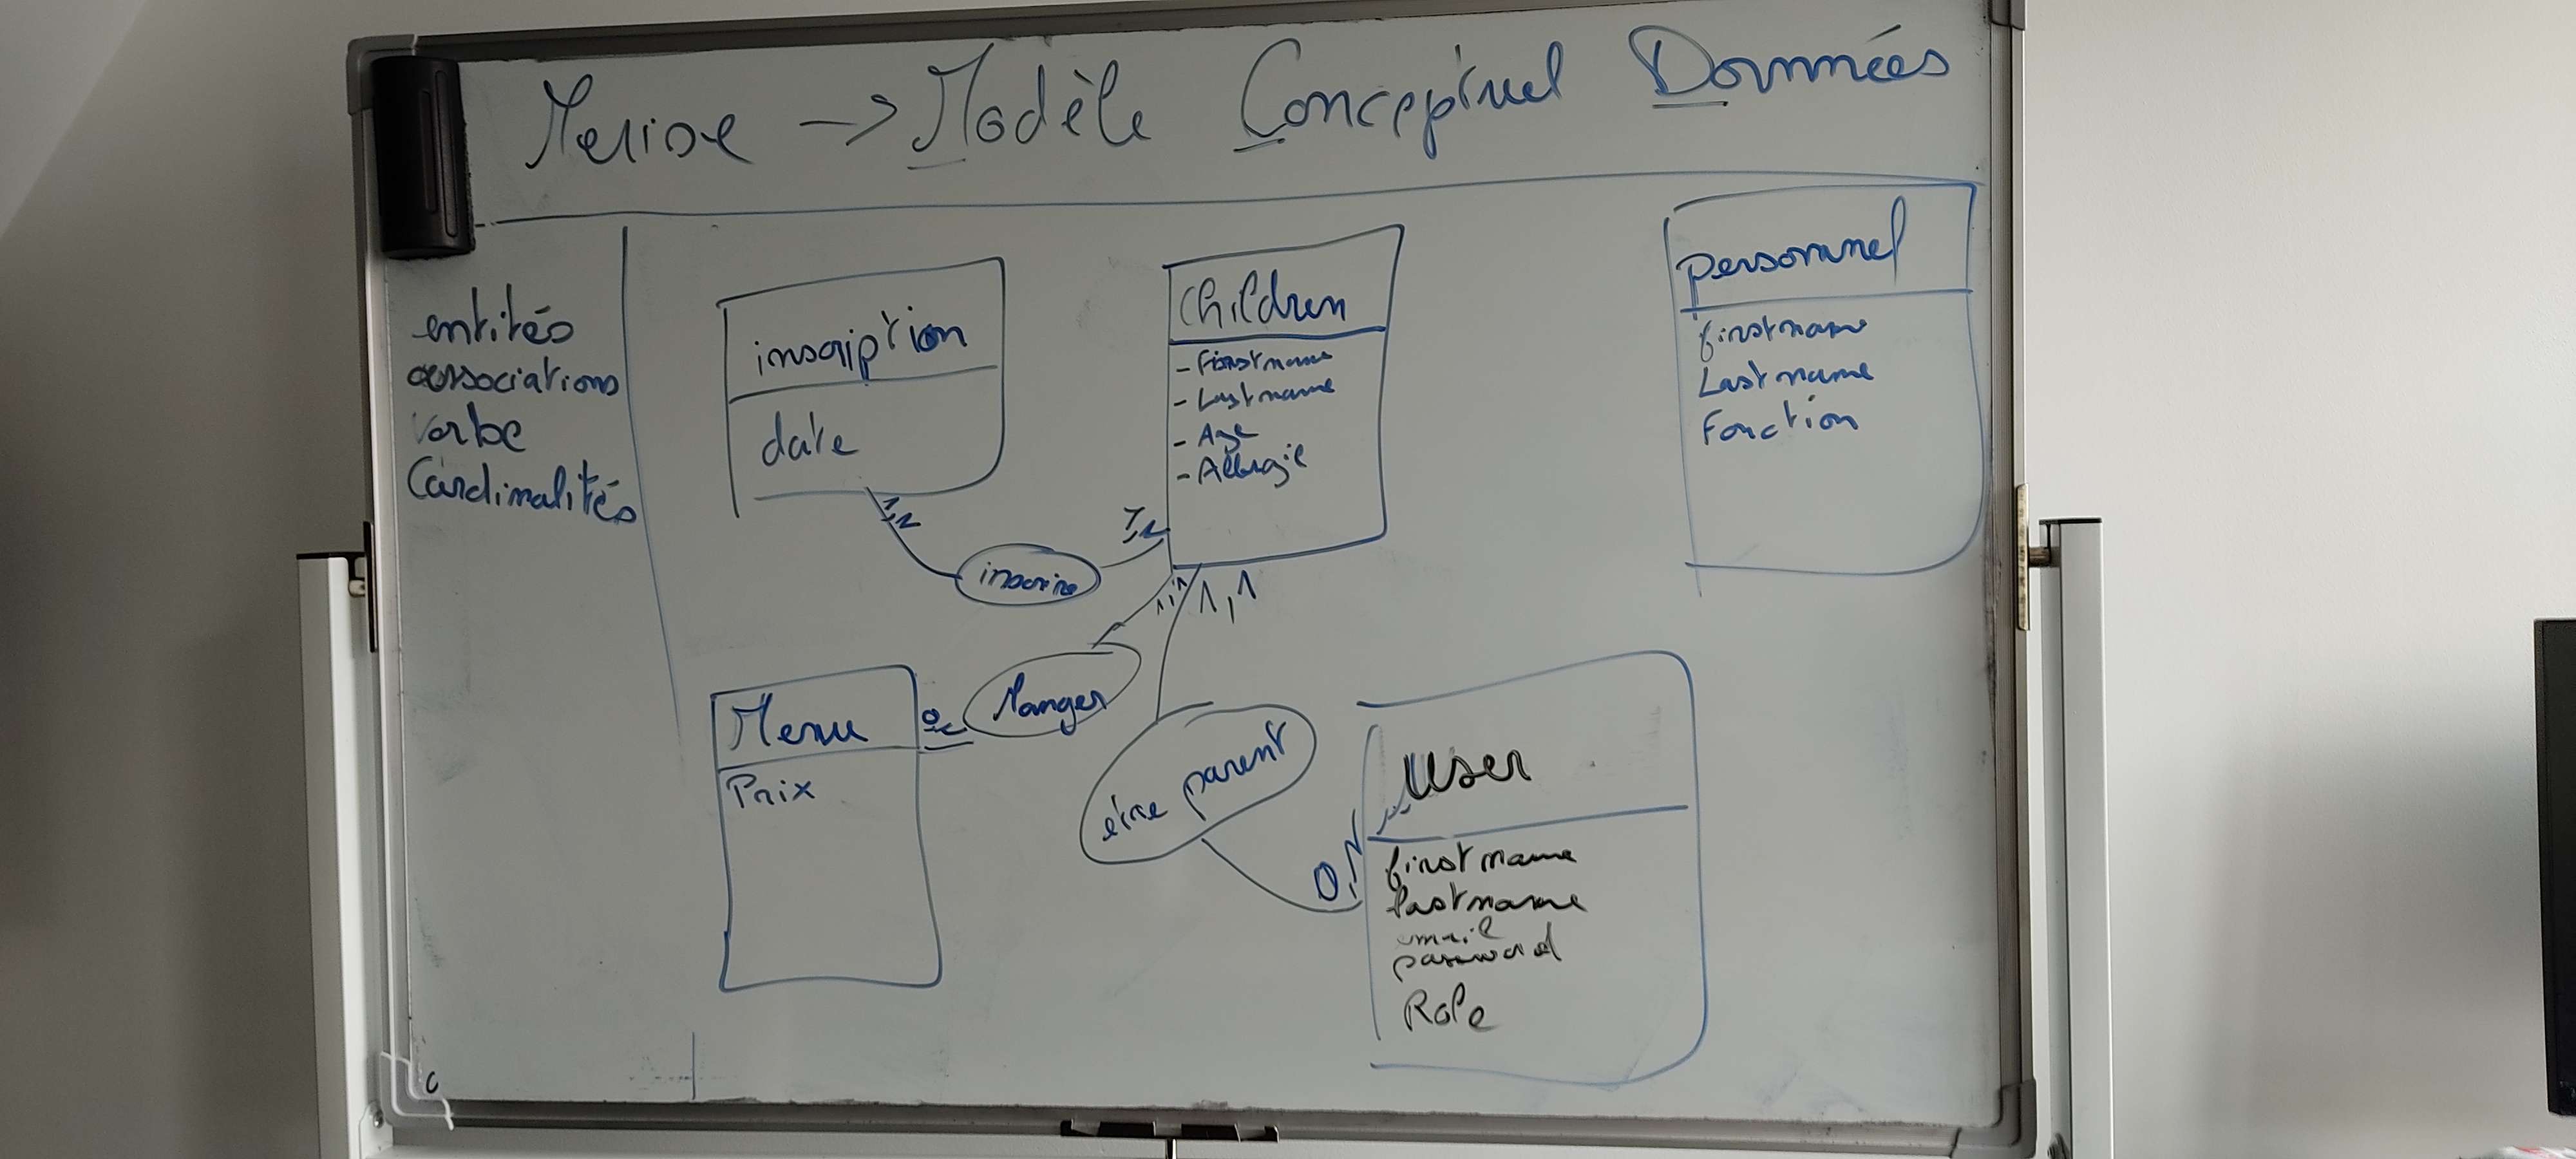 Merise -> Modèle Conceptuel Données
entités
associations
verbe
Cardinalités
inscription
date
1,N
inscrire
1,N
Children
- Firstname
- Lastname
- Age
- Allergie
1,1
1,1
personnel
firstname
Lastname
Fonction
Menu
Prix
Manger
être parent
0,N
User
firstname
lastname
email
password
Role